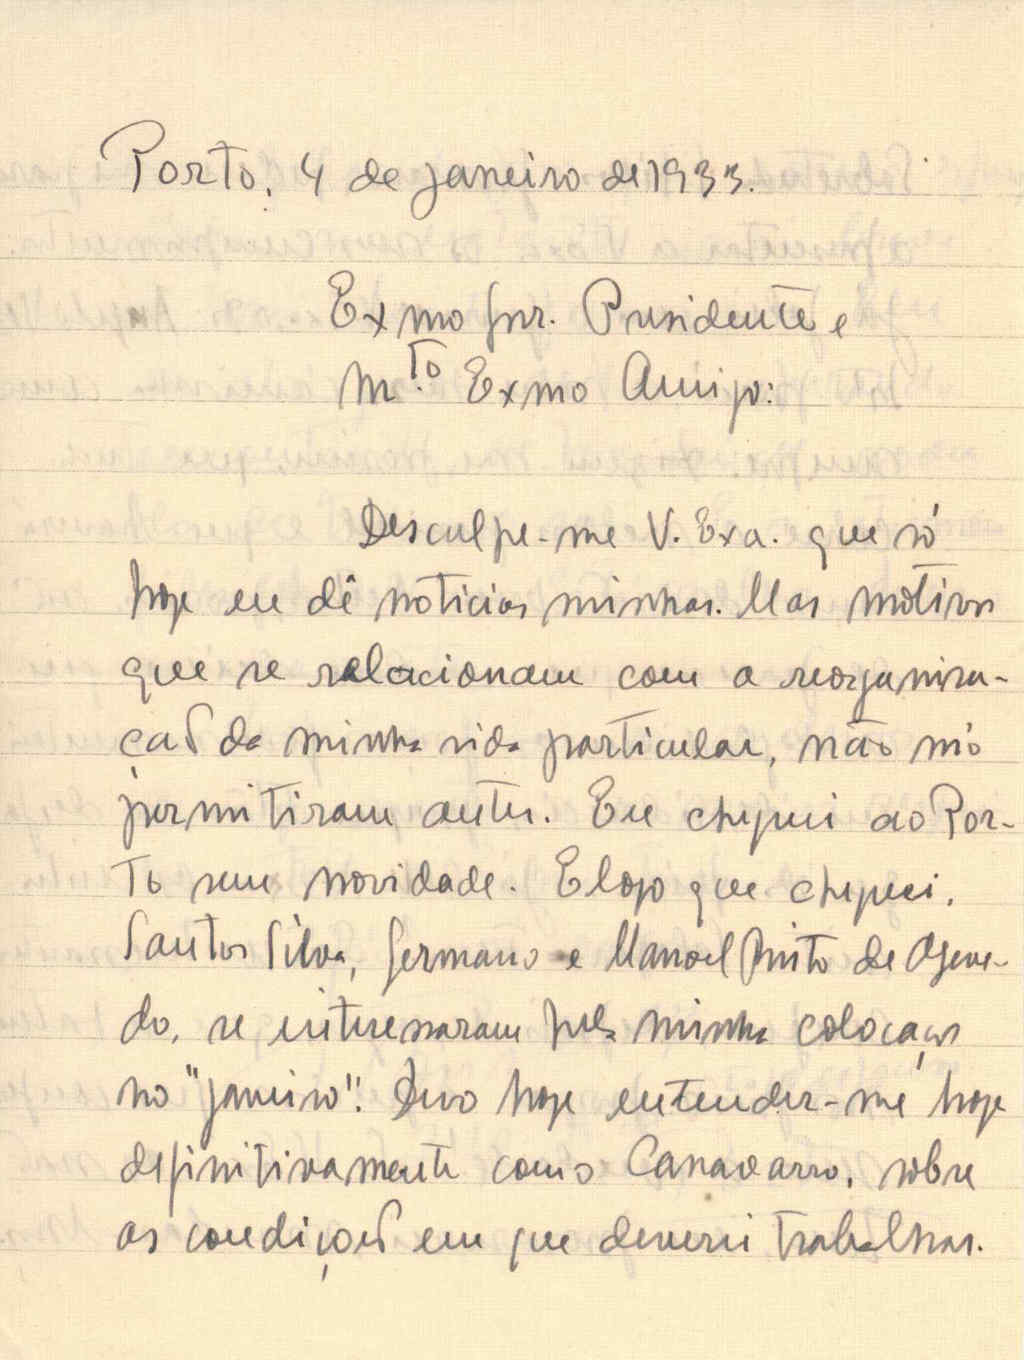 Porto, 4 de Janeiro de 1933.
Exmo Snr. Presidente e
M.to Exmo Amigo:
Desculpe-me V. Exa. que só
hoje eu dê noticias minhas. Mas motivos
que se relacionam com a reorganisa-
ção da minha vida particular, não m'o
permitiram antes. Eu cheguei ao Por-
to sem novidade. E logo que cheguei,
Santos Silva, Germano e Manoel Pinto de Azeve-
do, se interessaram pela minha colocação
no "Janeiro". Devo hoje entender-me hoje
definitivamente com o Canavarro, sobre
as condições em que deverei trabalhar.